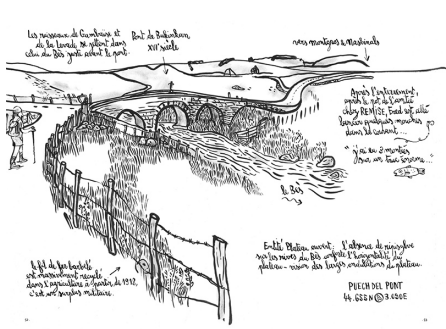 Les ruisseaux de Gambaïse et
de la Levade se jettent dans
celui du Bès juste avant le pont.
Pont de
XVIᵉ siècle
vers Montgros & Nasbinals
Après l'enterrement,
après le pot de l'amitié
chez REMISE, Fred est allé
lancer quelques mouches
dans
"j'ai eu 2 montées
sur un truc énorme..."
le Bès
le fil de fer barbelé
est massivement recyclé
dans l'agriculture à partir de 1918,
c'est un surplus militaire.
Entité Plateau ouvert : L'absence de ripisylve
sur les rives du Bès conforte l'horizontalité du
plateau - vision des larges ondulations du plateau.
PUECH DEL PONT
44.655N 3.050E